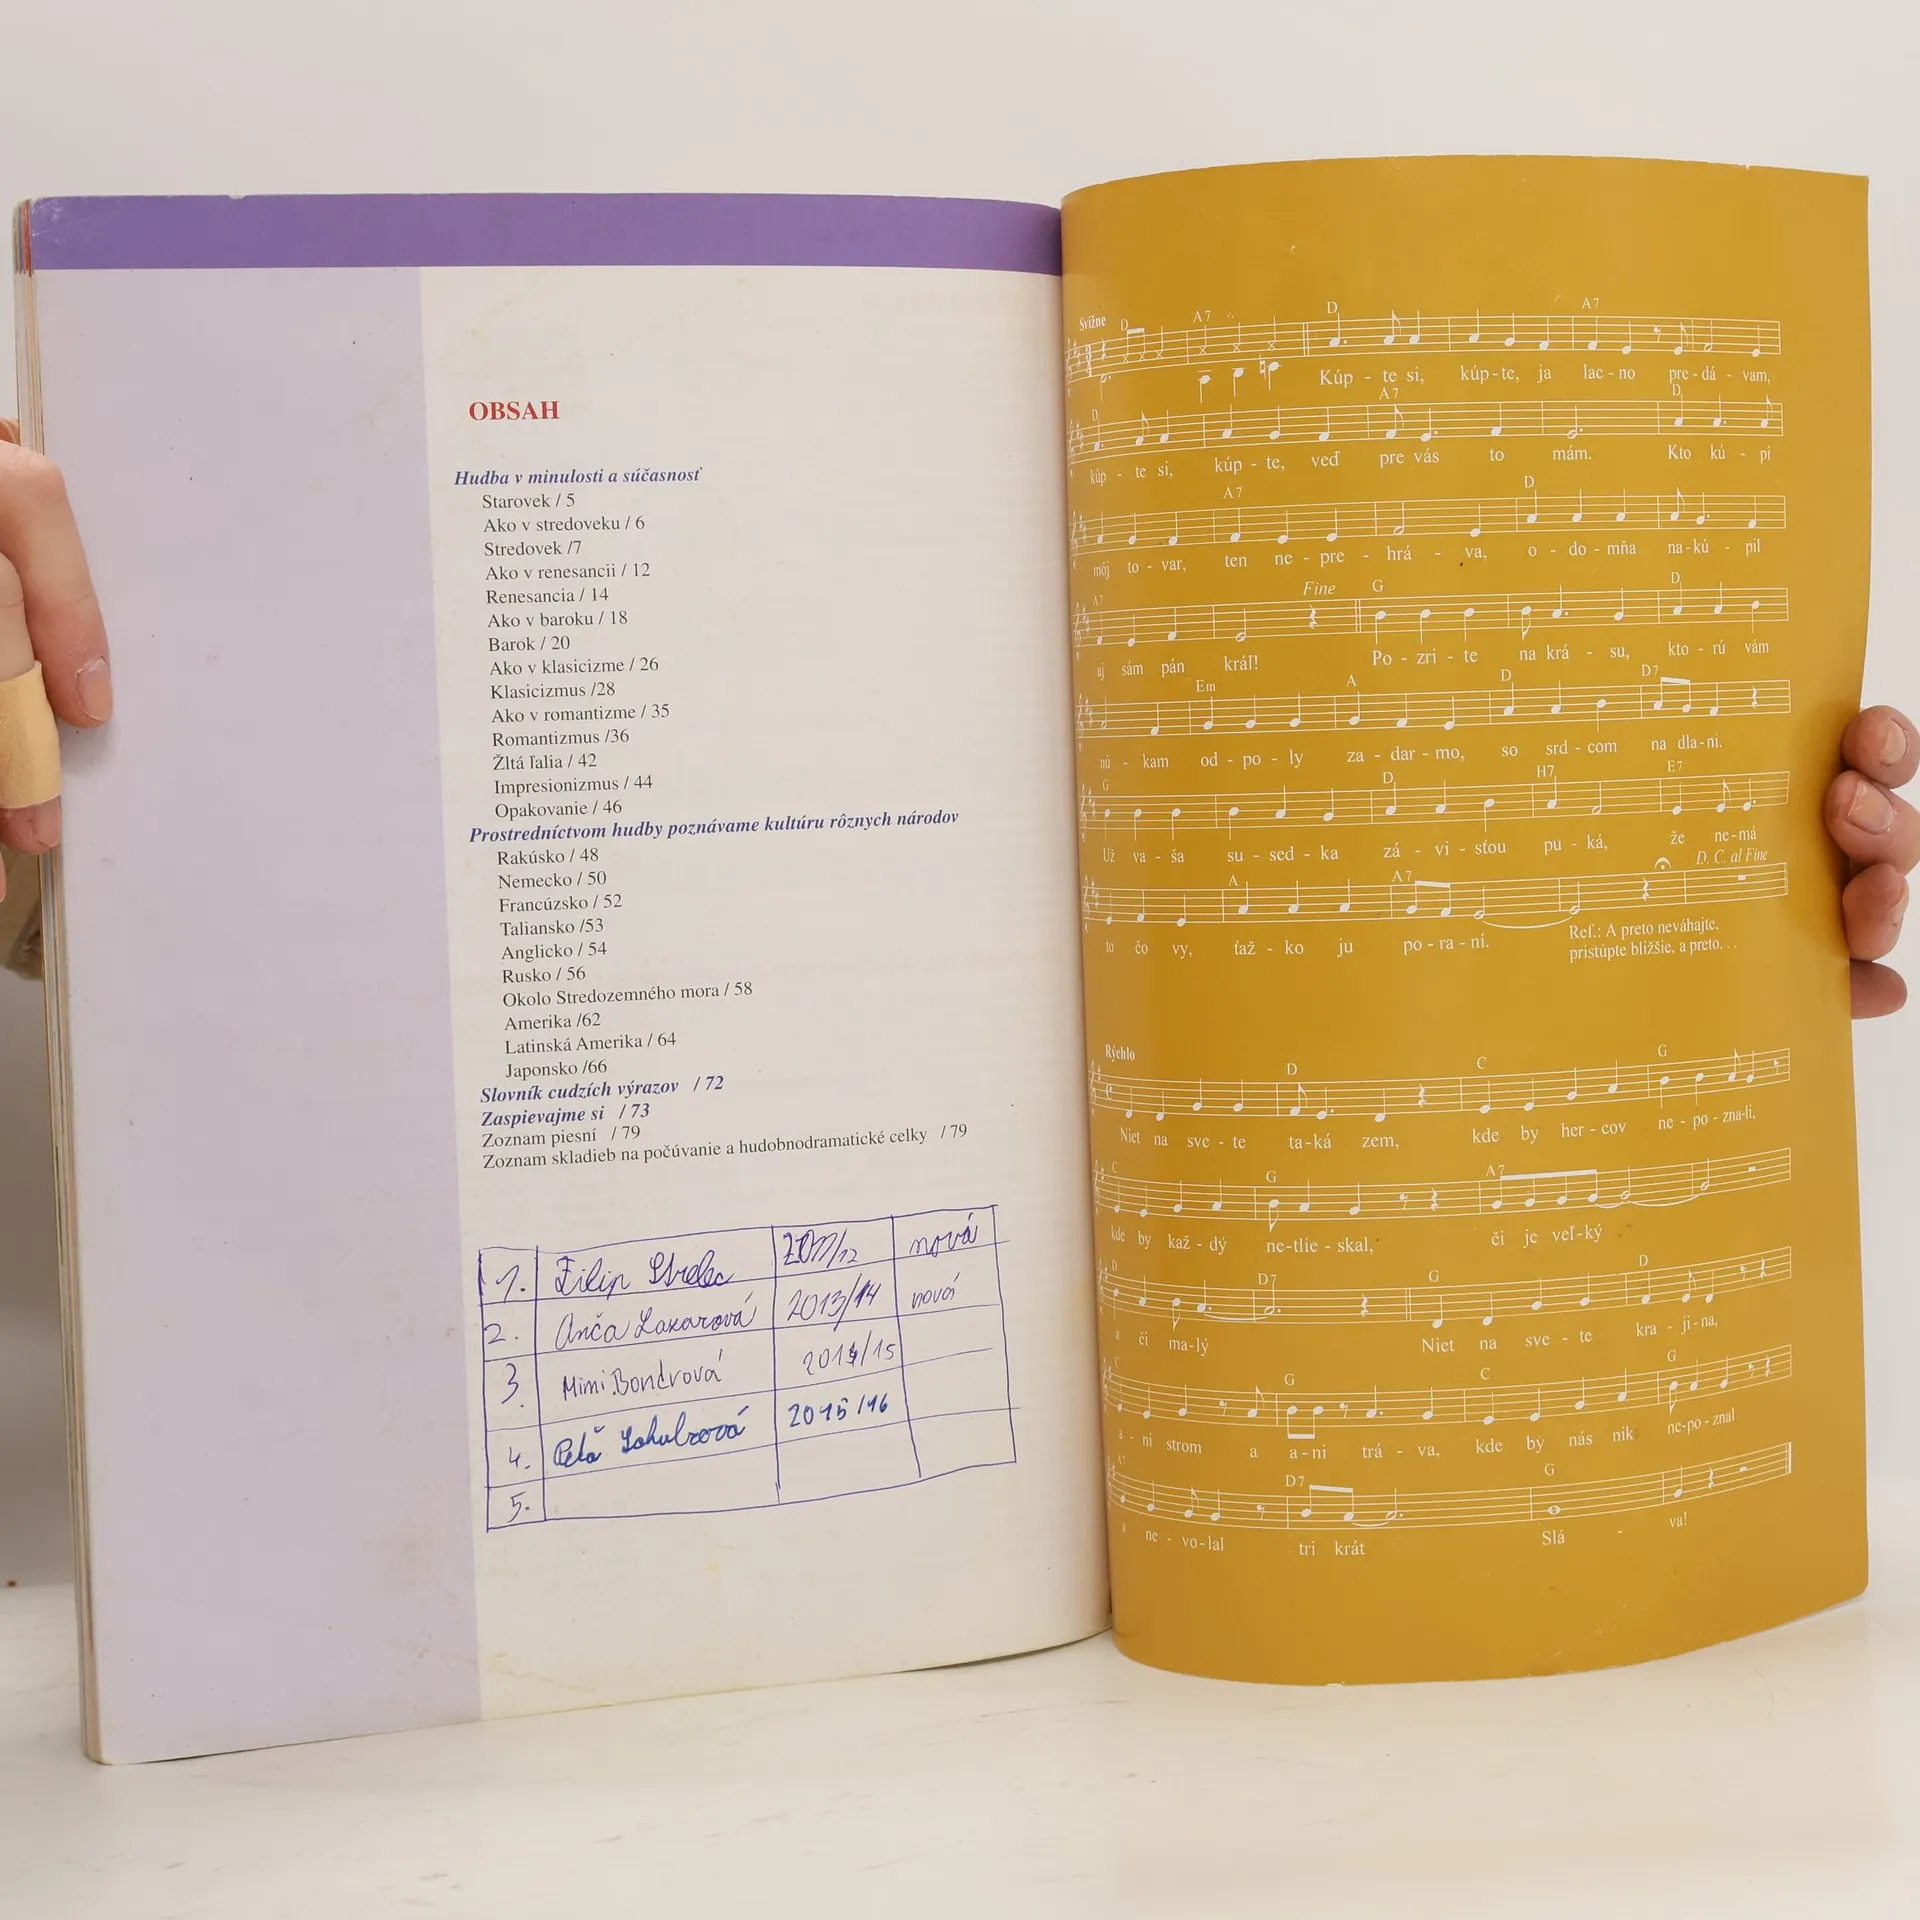 OBSAH
Hudba v minulosti a súčasnosť
Starovek / 5
Ako v stredoveku / 6
Stredovek /7
Ako v renesancii / 12
Renesancia / 14
Ako v baroku / 18
Barok / 20
Ako v klasicizme / 26
Klasicizmus /28
Ako v romantizme / 35
Romantizmus /36
Žltá ľalia / 42
Impresionizmus / 44
Opakovanie / 46
Prostredníctvom hudby poznávame kultúru rôznych národov
Rakúsko / 48
Nemecko / 50
Francúzsko / 52
Taliansko /53
Anglicko / 54
Rusko / 56
Okolo Stredozemného mora / 58
Amerika /62
Latinská Amerika / 64
Japonsko /66
Slovník cudzích výrazov / 72
Zaspievajme si / 73
Zoznam piesní / 79
Zoznam skladieb na počúvanie a hudobnodramatické celky / 79
1. Filip Strelec 2011/12 nová
2. Anča Lazarová 2013/14 nová
3. Mimi Bondrová 2014/15
4. 2015/16
5.
Svižne D A7 D A7
Kúp - te si, kúp - te, ja lac - no pre - dá - vam,
D A7 D
kúp - te si, kúp - te, veď pre vás to mám. Kto kú - pi
A7 D
môj to - var, ten ne - pre - hrá - va, o - do - mňa na - kú - pil
A7 Fine G D
aj sám pán kráľ! Po - zri - te na krá - su, kto - rú vám
Em A D D7
nú - kam od - po - ly za - dar - mo, so srd - com na dla - ni.
G D H7 E7
Už va - ša su - sed - ka zá - vi - sťou pu - ká, že ne - má
A A7 D. C. al Fine
to čo vy, ťaž - ko ju po - ra - ní.
Ref.: A preto neváhajte,
pristúpte bližšie, a preto. . .
Rýchlo D C G
Niet na sve - te ta - ká zem, kde by her - cov ne - po - zna - li,
C G A7
kde by kaž - dý ne - tlie - skal, či je veľ - ký
D D7 G D
a či ma - lý Niet na sve - te kra - ji - na,
C G C G
a - ni strom a a - ni trá - va, kde by nás nik ne - po - znal
A7 D7 G
a ne - vo - lal tri krát Slá - va!